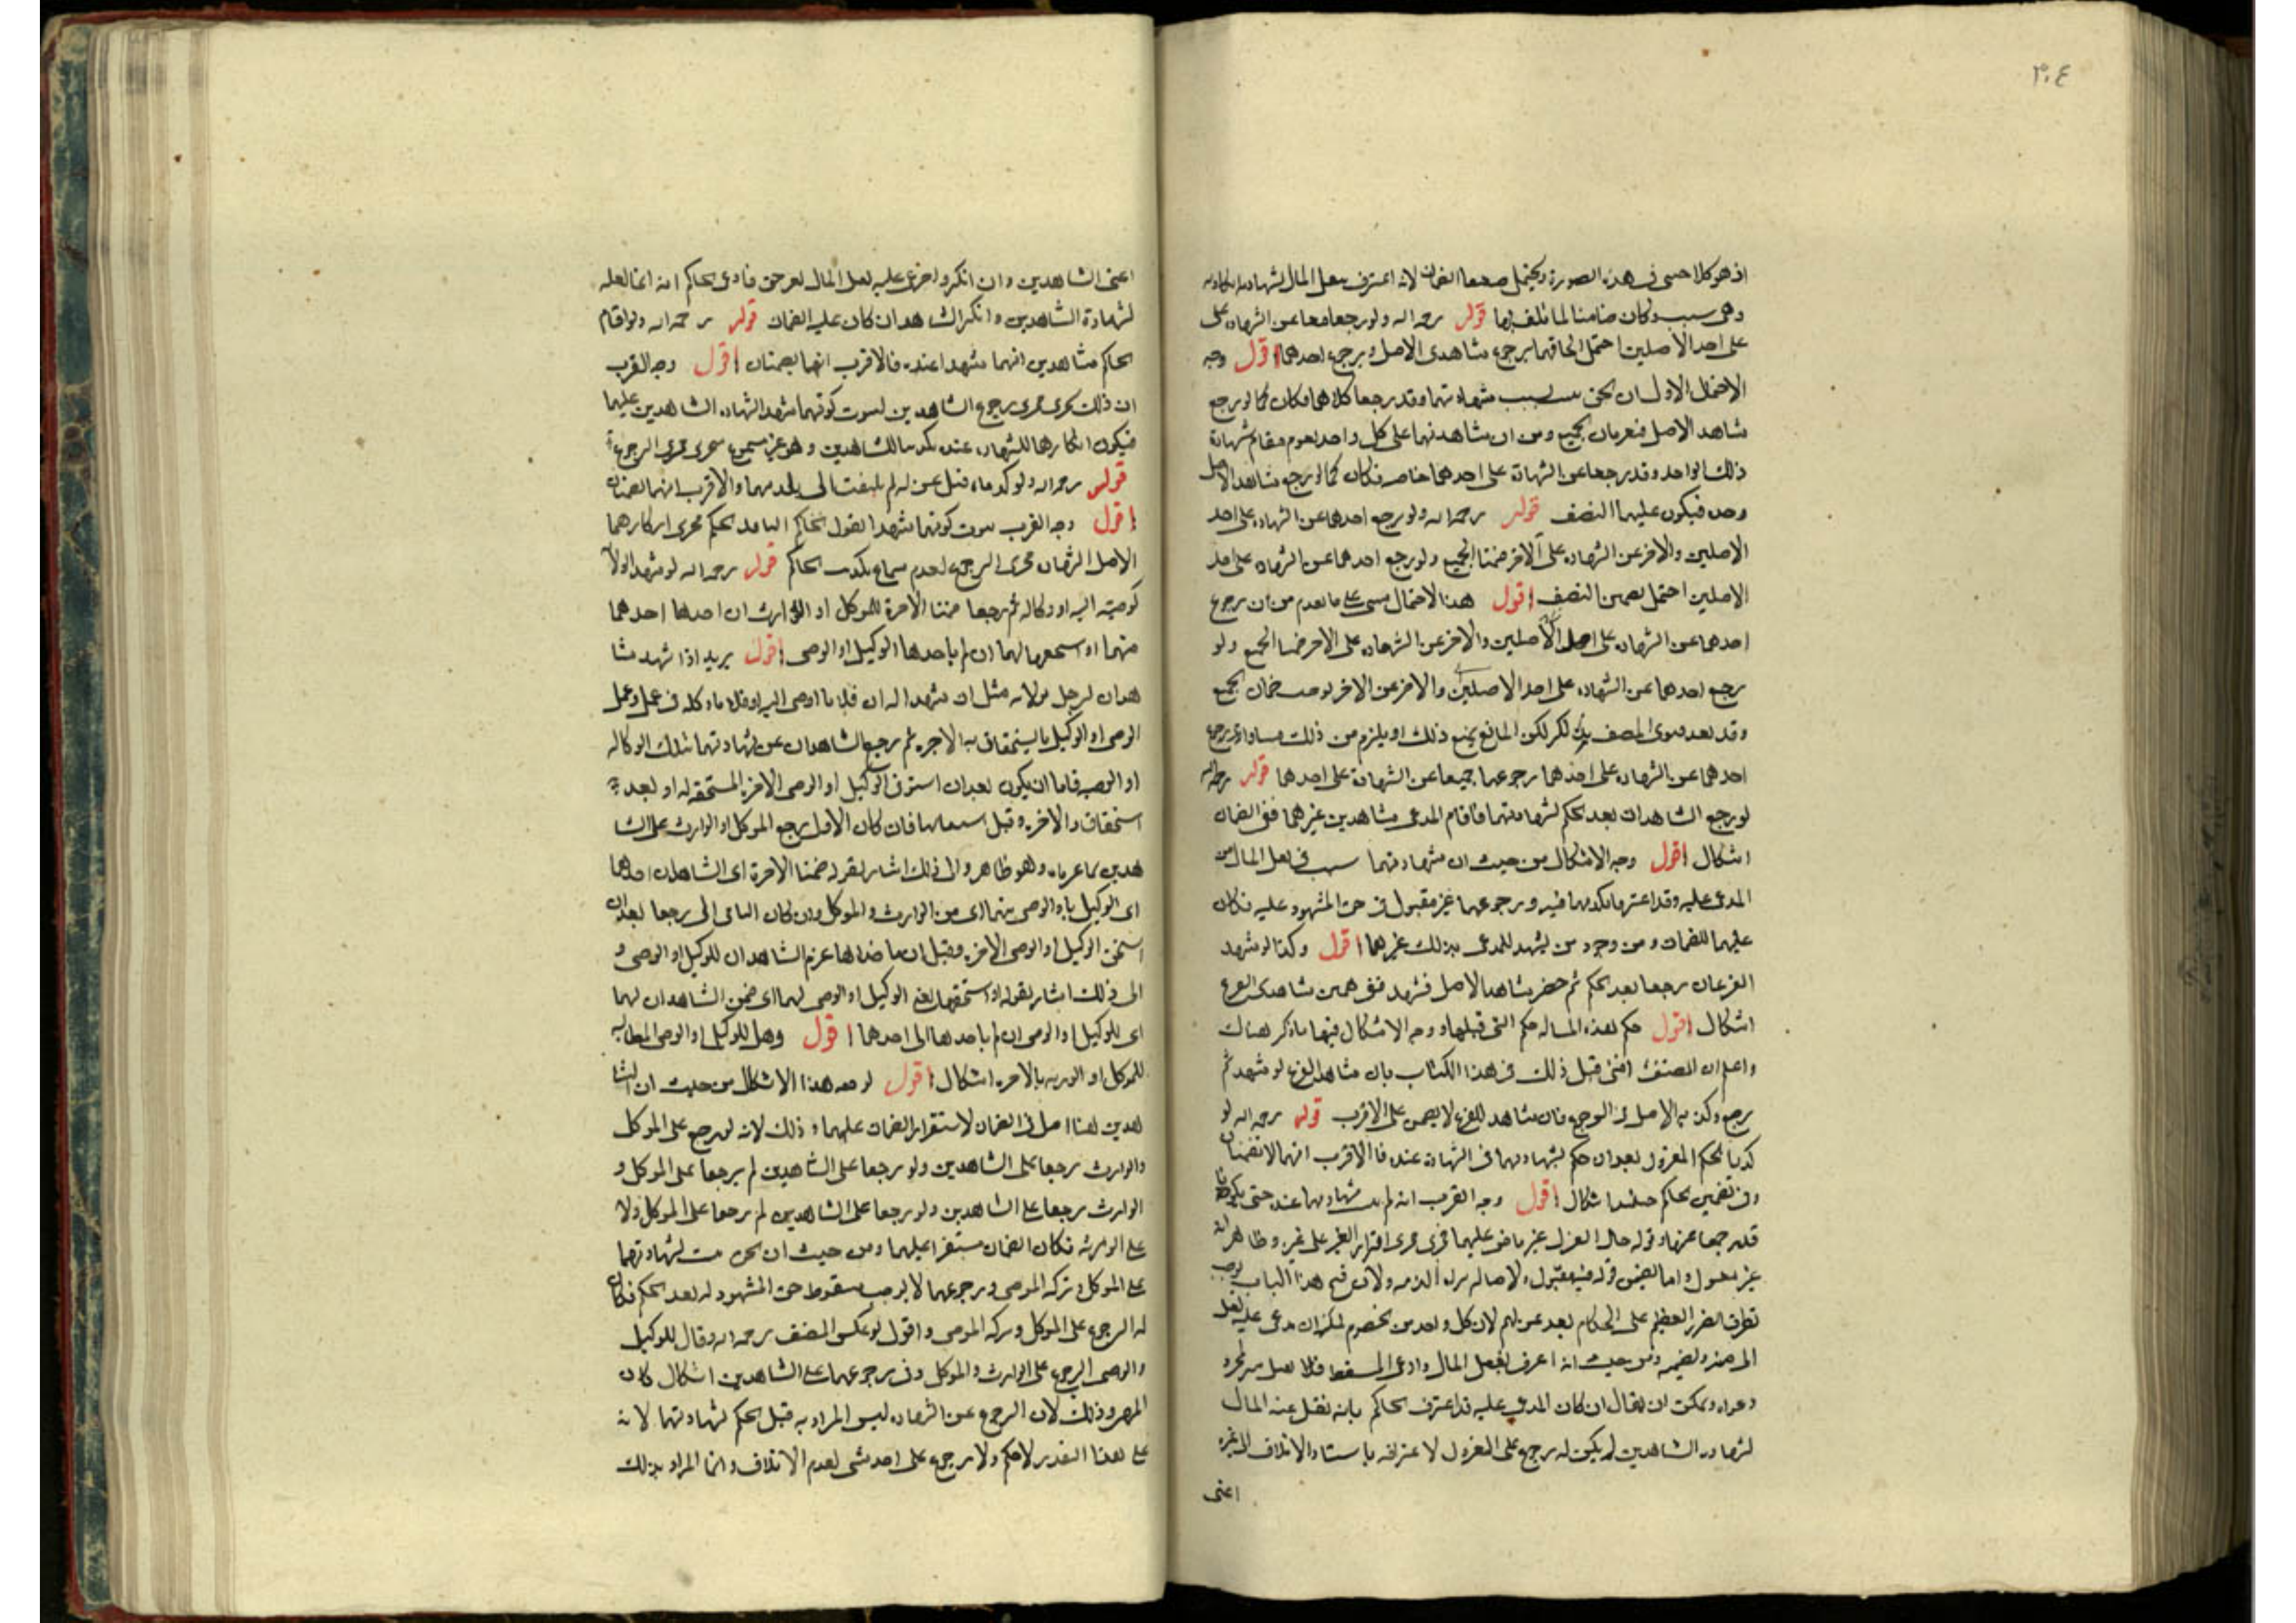 ٣٠٤
اذ هو كلاحى فى هذه الصورة ويحتمل ضعفا الضمان لانه اعترف بنقل المال بشهادته
وهى سبب وكان ضامنا لما تلف بها قوله رحمه الله ولو رجعا معا عن الشهادة على
على احد الاصلين احتمل الحاقهما برجوع شاهدى الاصل وبرجوع احدهما اقول وجه
الاحتمال الاول ان الحق بسبب شهادتهما وقد رجعا كلاهما فكان كما لو رجع
شاهد الاصل فيغرمان الجميع ومن ان شاهدتهما على كل واحد يقوم مقام شهادة
ذلك الواحد وقد رجعا عن الشهادة على احدهما خاصه فكان كما لو رجع شاهد الاصل
وحده فيكون عليهما النصف قوله رحمه الله ولو رجع احدهما عن الشهاده على احد
الاصلين والاخر عن الشهاده على الاخر ضمنا الجميع ولو رجع احدهما عن الشهاده على احد
الاصلين احتمل تضمين النصف اقول هذا الاحتمال مبنى على ما تقدم من ان رجوع
احدهما عن الشهاده على احد الاصلين والاخر عن الشهاده على الاخر ضمنا الجميع ولو
رجع احدهما عن الشهاده على احد الاصلين والاخر عن الاخر يوجب ضمان الجميع
وقد بعد فتوى المصنف بذلك لكن المانع يمنع ذلك او يلزم من ذلك مساواة رجوع
احدهما عن الشهاده على احدهما رجوعهما جميعا عن الشهادة على احدهما قوله رحمه الله
لو رجع الشاهدان بعد الحكم لشهادتهما فاقام المدعى شاهدين غيرهما ففى الضمان
اشكال اقول وجه الاشكال من حيث ان شهادتهما سبب فى نقل المال من
المدعى عليه وقد اعترفا بكذبهما فيه ورجوعهما غير مقبول فى حق المشهود عليه فكان
عليهما الضمان ومن وجود من يشهد للمدعى بذلك غيرهما اقول وكذا لو شهد
الفرعان رجعا بعد الحكم ثم حضر شاهد الاصل فشهد ففى تضمين شاهدى الفرع
اشكال اقول حكم هذه المساله حكم التى قبلها ووجه الاشكال فيها ما ذكر هناك
واعلم ان المصنف افتى قبل ذلك فى هذا الكتاب بان شاهد الفرع لو شهد ثم
رجع وكذبه الاصل فى الرجوع فان شاهد الفرع لا يضمن على الاقرب قوله رحمه الله لو
كذبا الحكم المعزول بعد ان حكم بشهادتهما فى الشهادة عنده فالاقرب انهما لا يضمنان
وفى تضمين الحاكم حينئذ اشكال اقول وجه القرب انه لم يثبت شهادتهما عنده حتى يكونا
قد رجعا عنها وقوله حال العزل غير ماض عليهما فجرى مجرى اقرار الغير على غيره وظاهر انه
غير مقبول واما تضمين قوله فيه مقبول والاصاله براءة الذمه ولان فتح هذا الباب يوجب
تطرق الضرر العظيم على الحكام بعد عزلهم لان كل واحد من الخصوم لمكنه ان يدعى عليه نقل
المال منه وتضمينه ومن حيث انه اعترف بنقل المال وادعى المسقط فلا يقبل منه بمجرد
دعواه ويمكن ان يقال ان كان المدعى عليه قد اعترف الحاكم بانه نقل عنه المال
لشهادة الشاهدين لم يكن له رجوع على المعزول لاعترافه باستناد الاتلاف الى غيره
اعنى
اعنى الشاهدين وان انكر وادعى عليه نقل المال بغير حق فادعى الحاكم انه انما نقله
لشهادة الشاهدين وانكر الشاهدان كان عليه الضمان قوله رحمه الله ولو اقام
الحاكم شاهدين انهما شهدا عنده فالاقرب انهما يضمنان اقول وجه القرب
ان ذلك يجرى مجرى رجوع الشاهدين لثبوت كونهما شهدا لشهادة الشاهدين عليهما
فيكون انكارهما للشهادة عنده تكذيبا للشاهدين وهو غير مسموع فيجرى مجرى الرجوع
قوله رحمه الله ولو كذباه قبل عزله لم يلتفت الى تكذيبهما والاقرب انهما يضمنان
اقول وجه القرب ثبوت كونهما شهدا بقول الحاكم النافذ الحكم فجرى انكارهما
الاصل الشهادة مجرى الرجوع لعدم سماع تكذيب الحاكم قوله رحمه الله لو شهدا لولا
كوصيته اليه او وكاله ثم رجعا ضمنا الاجرة للموكل او الوارث ان احدها احدهما
منهما او استحقها لهما ان لم ياخذها الوكيل او الوصى اقول يريد اذا شهد شا
هدان لرجل بولايه مثل ان شهدا له ان فلانا اوصى اليه او فلانا وكله فى عمل وعمل
الوصى او الوكيل ما يستحقان به الاجره ثم رجع الشاهدان عن شهادتهما بتلك الوكاله
او الوصيه فاما ان يكون بعد ان استوفى الوكيل او الوصى الاجره المستحقه له او بعد
استحقاق الاجره وقبل استيفائها فان كان الاول رجع الموكل او الوارث على الشا
هدين بما غرماه وهو ظاهر والى ذلك اشار بقوله ضمنا الاجرة اى الشاهدان احدهما
اى الوكيل او الوصى منهما اى من الوارث والموكل وان كان الثانى اى رجعا بعد ان
استحق الوكيل او الوصى الاجره وقبل ان ياخذاها غرم الشاهدان للوكيل او الوصى و
الى ذلك اشار بقوله او استحقها يعنى الوكيل او الوصى لهما اى ضمن الشاهدان لهما
اى للوكيل او الوصى ان لم ياخذها اى احدهما اقول وهل للوكيل او الوصى المطالبه
للموكل او الورثه بالاجره اشكال اقول توجيه هذا الاشكال من حيث ان الشا
هدين هنا اصل فى الضمان لاستقرار الضمان عليهما وذلك لانه لو رجع على الموكل
والوارث رجعا على الشاهدين ولو رجعا على الشاهدين لم يرجعا على الموكل و
الوارث رجعا على الشاهدين ولو رجعا على الشاهدين لم يرجعا على الموكل ولا
على الورثه فكان الضمان مستقرا عليهما ومن حيث ان الحق ثبت لشهادتهما
على الموكل وتركه الموصى ورجوعهما لا يوجب سقوط حق المشهود له بعد الحكم فكان
له الرجوع على الموكل وتركه الموصى واقول لو عكس المصنف رحمه الله وقال للوكيل
والوصى الرجوع على الوارث والموكل وفى رجوعهما على الشاهدين اشكال كان
وذلك لان الرجوع عن الشهاده ليس المراد به قبل الحكم لشهادتهما لانه
على هذا التقدير لا حكم ولا رجوع على احد بشى لعدم الاتلاف وانما المراد بذلك